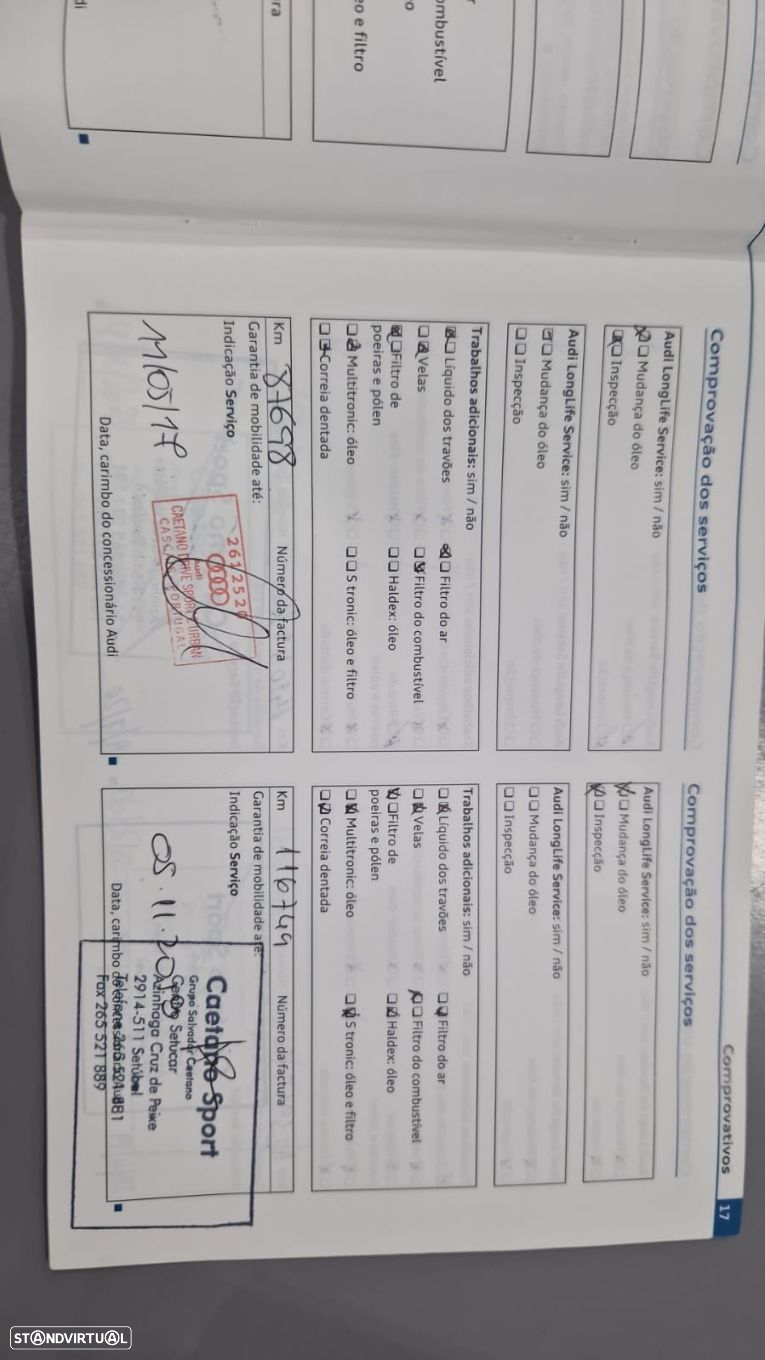 Comprovativos
17
Comprovação dos serviços
Audi LongLife Service: sim / não
Mudança do óleo
Inspecção
Audi LongLife Service: sim / não
Mudança do óleo
Inspecção
Trabalhos adicionais: sim / não
Líquido dos travões
Filtro do ar
Velas
Filtro do combustível
Filtro de
poeiras e pólen
Haldex: óleo
Multitronic: óleo
S tronic: óleo e filtro
Correia dentada
Km 87698
Número da factura
Garantia de mobilidade até:
Indicação Serviço
2612520
Audi
CAETANO DRIVE SPORT E URBAN
CASCAIS PORTUGAL
11/05/17
Data, carimbo do concessionário Audi
Comprovação dos serviços
Audi LongLife Service: sim / não
Mudança do óleo
Inspecção
Audi LongLife Service: sim / não
Mudança do óleo
Inspecção
Trabalhos adicionais: sim / não
Líquido dos travões
Filtro do ar
Velas
Filtro do combustível
Filtro de
poeiras e pólen
Haldex: óleo
Multitronic: óleo
S tronic: óleo e filtro
Correia dentada
Km 116749
Número da factura
Garantia de mobilidade até:
Indicação Serviço
05.11.20
Caetano Sport
Grupo Salvador Caetano
Centro Setucar
Azinhaga Cruz de Peixe
2914-511 Setúbal
Telefone 265 521 881
Fax 265 521 889
Data, carimbo do concessionário Audi
ombustível
o
eo e filtro
ra
di
STANDVIRTUAL